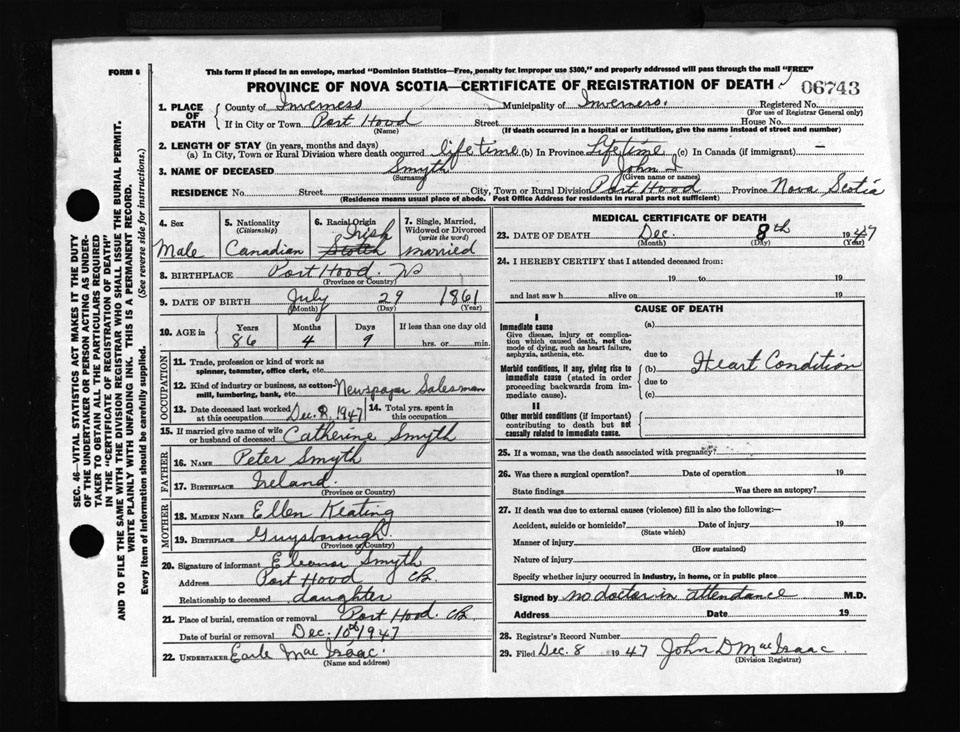 FORM 6
This form if placed in an envelope, marked "Dominion Statistics—Free, penalty for improper use $300," and properly addressed will pass through the mail "FREE"
PROVINCE OF NOVA SCOTIA—CERTIFICATE OF REGISTRATION OF DEATH
06743
1. PLACE OF DEATH
County of Inverness Municipality of Inverness. Registered No.
(For use of Registrar General only)
If in City or Town Port Hood Street House No.
(Name) (If death occurred in a hospital or institution, give the name instead of street and number)
2. LENGTH OF STAY (in years, months and days)
(a) In City, Town or Rural Division where death occurred lifetime (b) In Province Lifetime (c) In Canada (if immigrant) —
3. NAME OF DECEASED Smyth John
(Surname) (Given name or names)
RESIDENCE No. Street City, Town or Rural Division Port Hood Province Nova Scotia
(Residence means usual place of abode. Post Office Address for residents in rural parts not sufficient)
SEC. 46—VITAL STATISTICS ACT MAKES IT THE DUTY
OF THE UNDERTAKER OR PERSON ACTING AS UNDER-
TAKER TO OBTAIN ALL THE PARTICULARS REQUIRED
IN THE "CERTIFICATE OF REGISTRATION OF DEATH"
AND TO FILE THE SAME WITH THE DIVISION REGISTRAR WHO SHALL ISSUE THE BURIAL PERMIT.
WRITE PLAINLY WITH UNFADING INK. THIS IS A PERMANENT RECORD.
Every item of information should be carefully supplied. (See reverse side for instructions.)
4. Sex
Male
5. Nationality
(Citizenship)
Canadian
6. Racial Origin
Irish
Scotch
7. Single, Married, Widowed or Divorced
(write the word)
married
8. BIRTHPLACE Port Hood. NS
(Province or Country)
9. DATE OF BIRTH July 29 1861
(Month) (Day) (Year)
10. AGE in
Years Months Days If less than one day old
86 4 9 hrs. or min.
OCCUPATION
11. Trade, profession or kind of work as
spinner, teamster, office clerk, etc.
12. Kind of industry or business, as cotton-
mill, lumbering, bank, etc. Newspaper Salesman
13. Date deceased last worked at this occupation Dec. 8, 1947
14. Total yrs. spent in this occupation
15. If married give name of wife or husband of deceased Catherine Smyth
FATHER
16. NAME Peter Smyth
17. BIRTHPLACE Ireland.
(Province or Country)
MOTHER
18. MAIDEN NAME Ellen Keating
19. BIRTHPLACE Guysborough
(Province or Country)
20. Signature of informant Eleanor Smyth
Address Port Hood CB.
Relationship to deceased daughter
21. Place of burial, cremation or removal Port Hood. CB
Date of burial or removal Dec. 10th 1947
22. UNDERTAKER Earle MacIsaac.
(Name and address)
MEDICAL CERTIFICATE OF DEATH
23. DATE OF DEATH Dec. 8th 1947
(Month) (Day) (Year)
24. I HEREBY CERTIFY that I attended deceased from:
19 to 19
and last saw h alive on 19
CAUSE OF DEATH
I
Immediate cause
Give disease, injury or complica-
tion which caused death, not the
mode of dying, such as heart failure,
asphyxia, asthenia, etc.
(a)
due to
Morbid conditions, if any, giving rise to
immediate cause (stated in order
proceeding backwards from im-
mediate cause).
(b) Heart Condition
due to
(c)
II
Other morbid conditions (if important)
contributing to death but not
causally related to immediate cause.
25. If a woman, was the death associated with pregnancy?
26. Was there a surgical operation? Date of operation 19
State findings Was there an autopsy?
27. If death was due to external causes (violence) fill in also the following:—
Accident, suicide or homicide? Date of injury 19
(State which)
Manner of injury
(How sustained)
Nature of injury
Specify whether injury occurred in industry, in home, or in public place
Signed by no doctor in attendance M.D.
Address Date 19
28. Registrar's Record Number
29. Filed Dec. 8 1947 John D MacIsaac.
(Division Registrar)